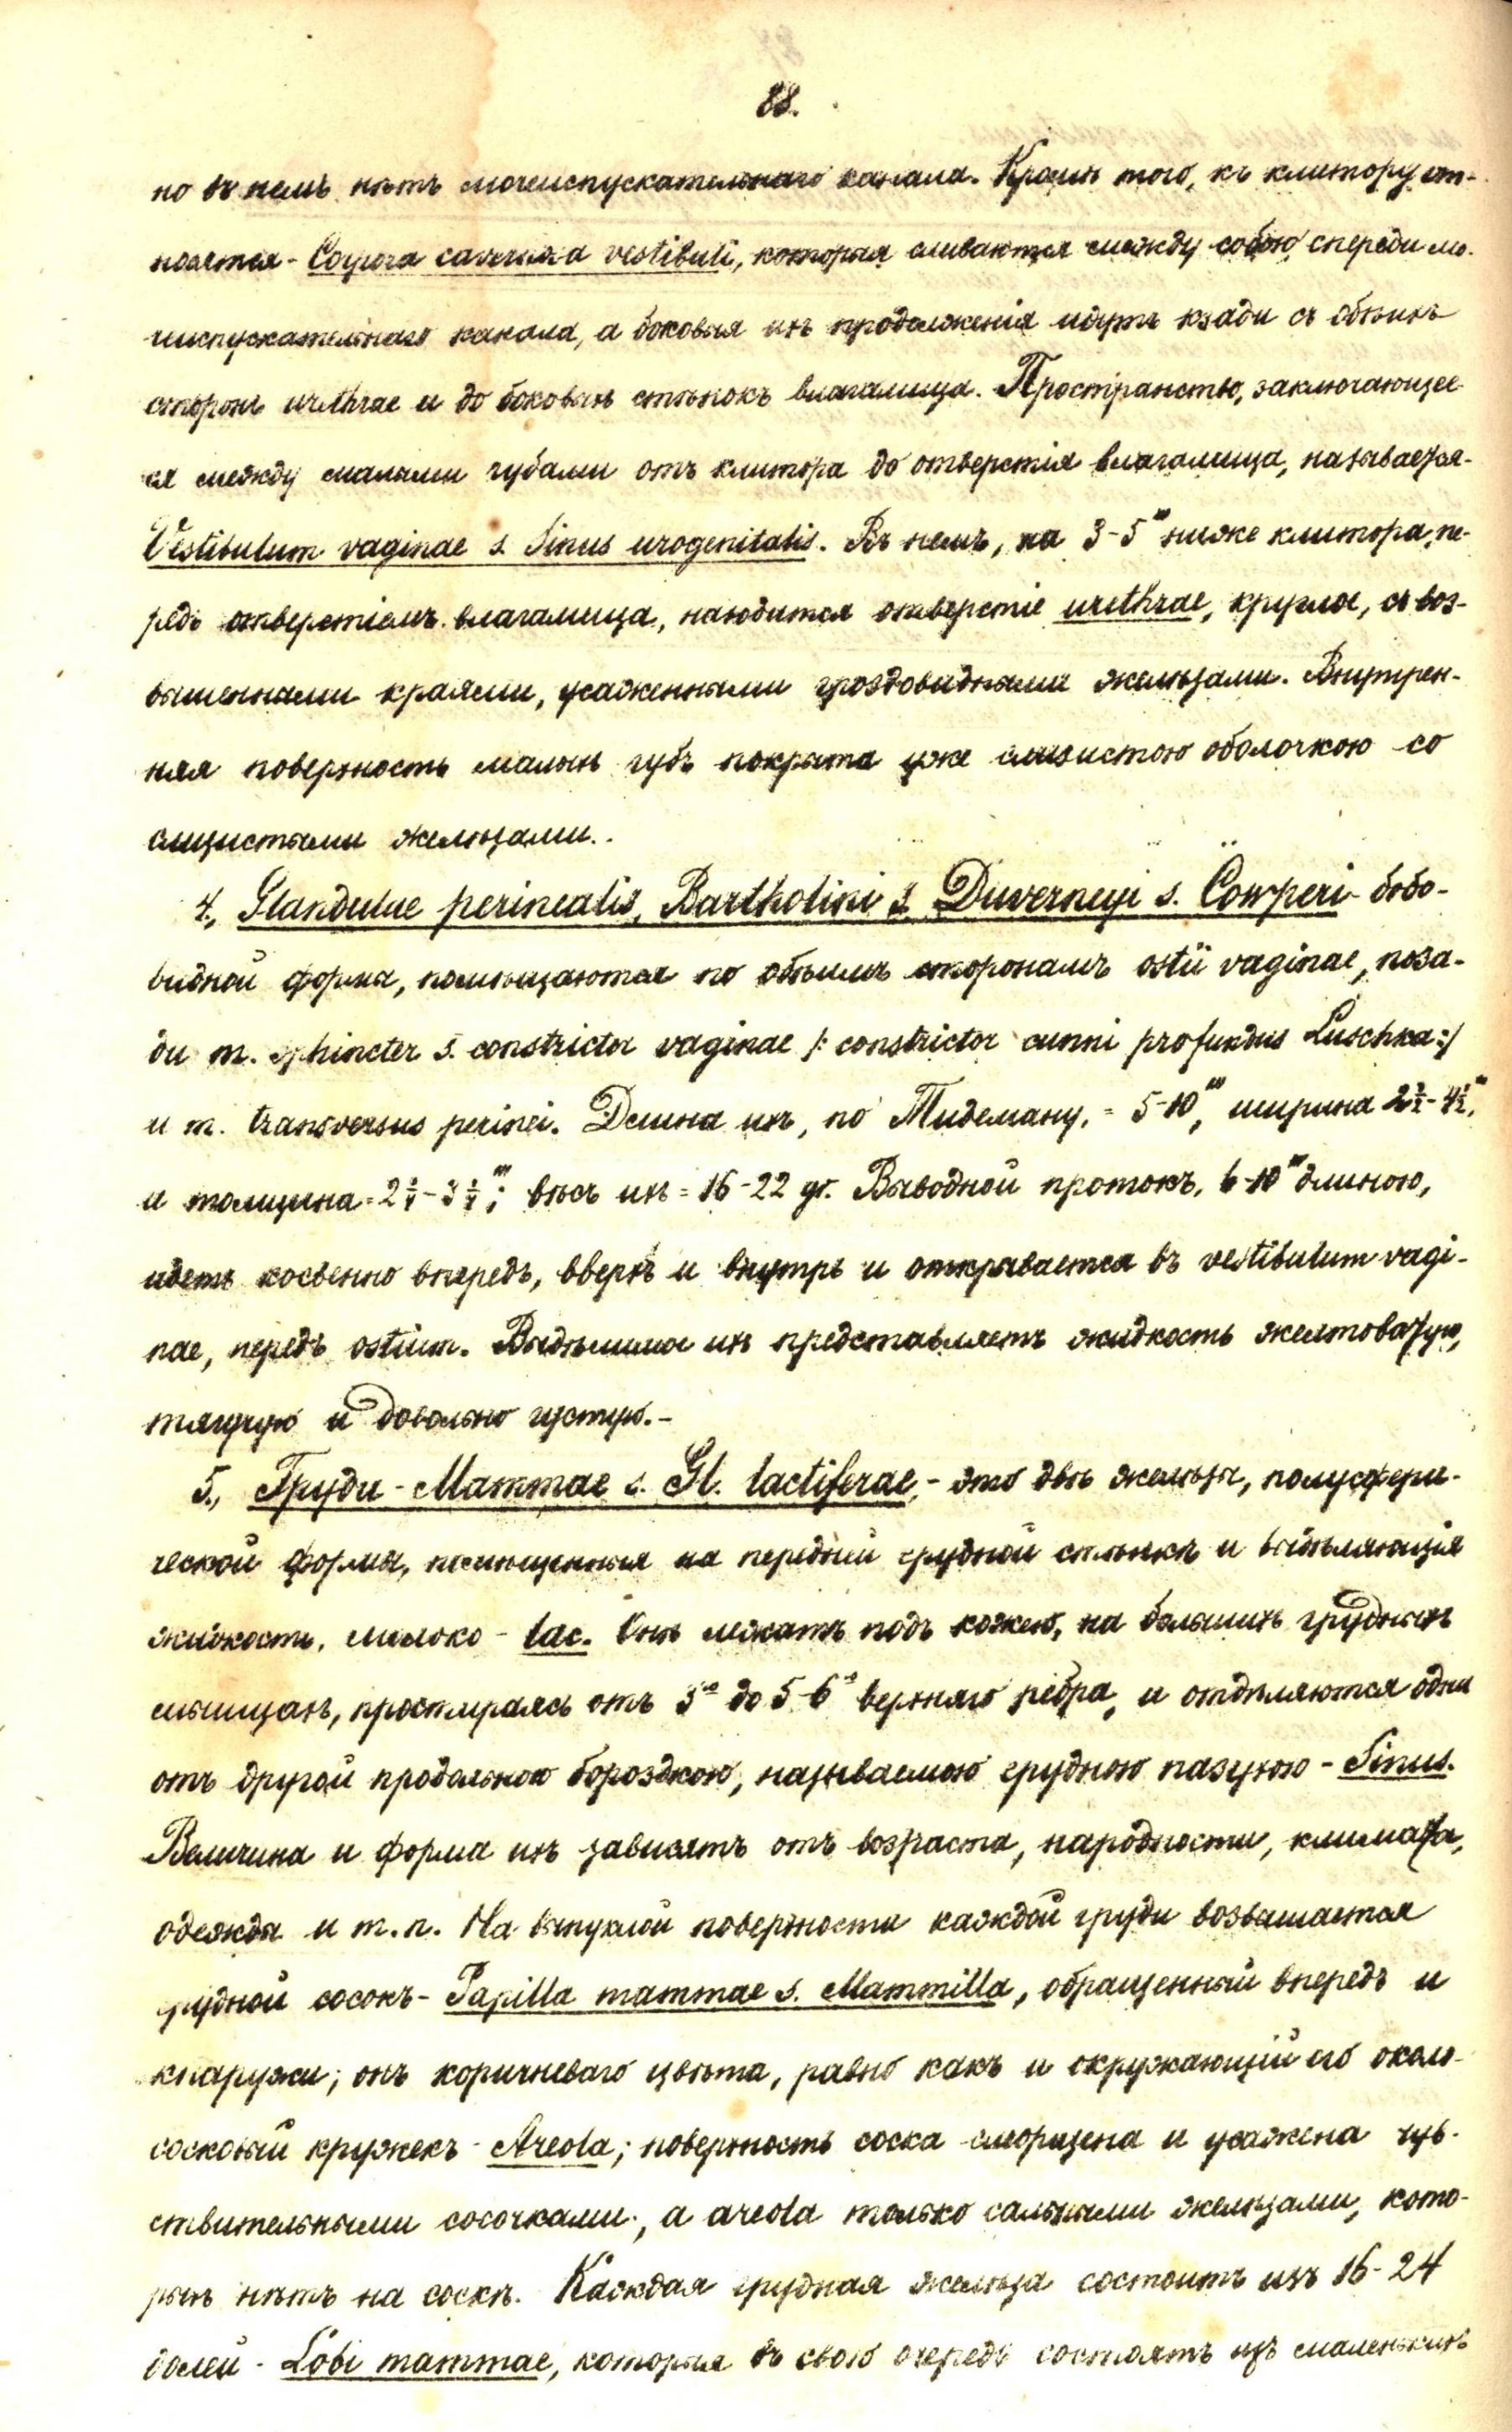 88.
но въ немъ нѣтъ мочеиспускательнаго канала. Кромѣ того, къ клитору от-
носятся - Corpora cavernosa vestibuli, которыя сливаются между собою спереди мо-
чиспускательнаго канала, а боковыя ихъ продолженія идутъ кзади съ обѣихъ
сторонъ urethrae и до боковыхъ стѣнокъ влагалища. Пространство, заключающее
ся между малыми губами отъ клитора до отверстія влагалища, называется-
Vestibulum vaginae s. Sinus urogenitalis. Въ немъ, на 3-5''' ниже клитора, пе-
редъ отверстіемъ влагалища, находится отверстіе urethrae, круглое, съ воз-
вышенными краями, усаженными гроздовидными железами. Внутрен-
няя поверхность малыхъ губъ покрыта уже слизистою оболочкою со
слизистыми железами.
4., Glandulae perinealis, Bartholini s. Duverneyi s. Cowperi - бобо-
видной формы, помѣщаются по обѣимъ сторонамъ ostii vaginae, поза-
ди m. sphincter s. constrictor vaginae /: constrictor cunni profundus Luschka :/
и m. transversus perinei. Длина ихъ, по Тидеману, = 5-10''', ширина 2½-4½''',
и толщина = 2¼-3¼'''; вѣсъ ихъ = 16-22 gr. Выводной протокъ, 6-10''' длиною,
идетъ косвенно впередъ, вверхъ и внутрь и открывается въ vestibulum vagi-
nae, передъ ostium. Выдѣлимое ихъ представляетъ жидкость желтоватую,
тягучую и довольно густую.-
5., Груди - Mammae s. Gl. lactiferae, - это двѣ железы, полусфери-
ческой формы, помѣщенныя на передней грудной стѣнкѣ и выдѣляющія
жидкость, молоко - lac. Онѣ лежатъ подъ кожею, на большихъ грудныхъ
мышцахъ, простираясь отъ 3го до 5-6го верхняго ребра, и отдѣляются одна
отъ другой продольною бороздкою, называемою грудною пазухою - Sinus.
Величина и форма ихъ зависятъ отъ возраста, народности, климата,
одежды и т.п. На выпуклой поверхности каждой груди возвышается
грудной сосокъ - Papilla mammae s. Mammilla, обращенный впередъ и
кнаружи; онъ коричневаго цвѣта, равно какъ и окружающій его около-
сосковый кружекъ - Areola; поверхность соска сморщена и усажена чув-
ствительными сосочками, а areola только сальными железами, кото-
рыхъ нѣтъ на соскѣ. Каждая грудная железа состоитъ изъ 16-24
долей - Lobi mammae, которыя въ свою очередь состоятъ изъ маленькихъ